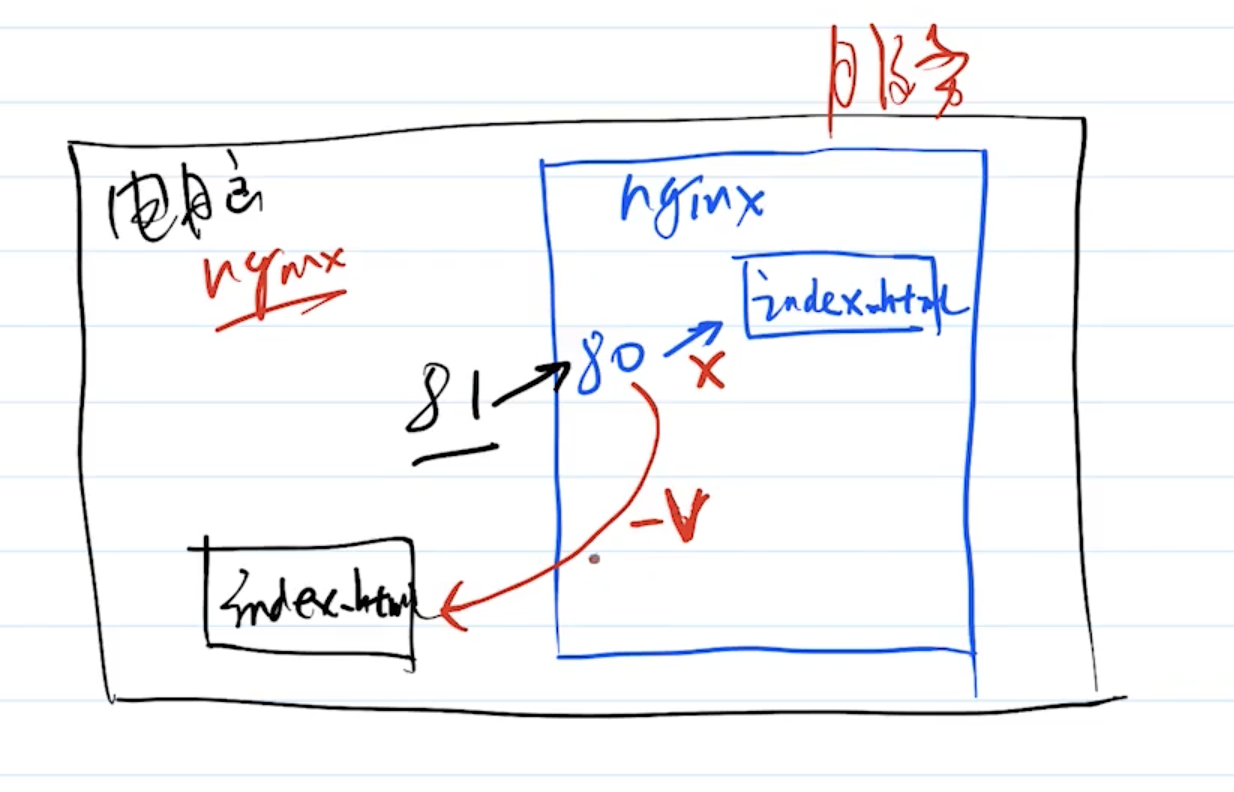 服务
电脑
nginx
nginx
index.html
80
x
81
-V
index.html